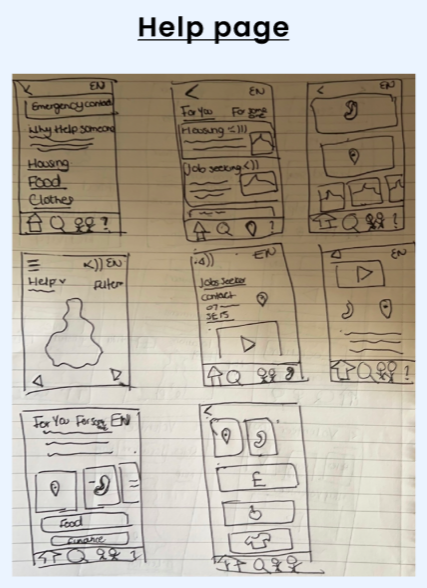 Help page
EN
Emergency contact
Why Help someone
Housing
Food
Clothes
?
EN
For You For some one
Housing
Job seeking
EN
?
EN
Help
filter
EN
Jobs Seeker
Contact
07
SE15
EN
?
For You For some EN
Food
Finance
?
£